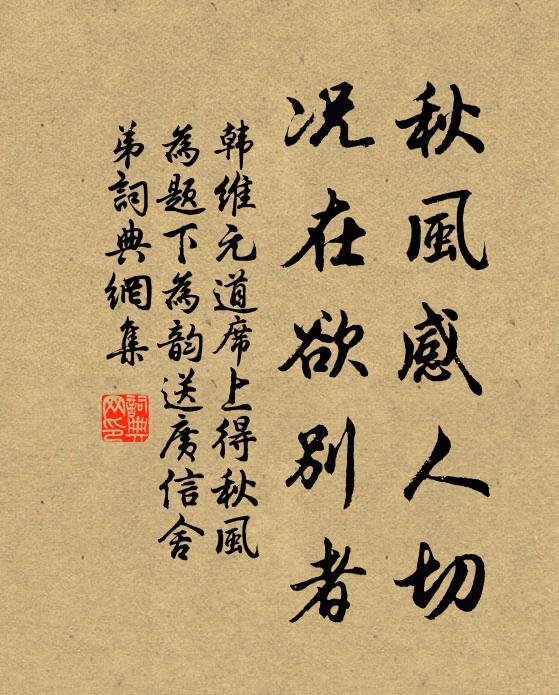 秋風感人切
况在欲别者
韩维元道席上得秋風
為题下為韵送廣信舍
弟詞典網集
詞典
网印